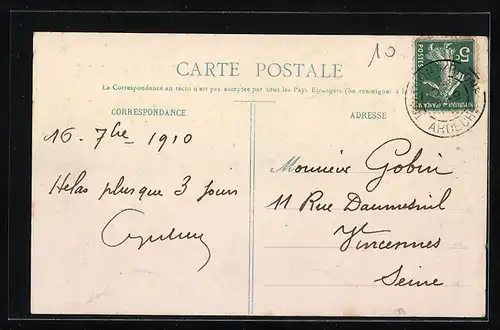 10
CARTE POSTALE
La Correspondance au recto n'est pas acceptée par tous les Pays Etrangers (Se renseigner à la
CORRESPONDANCE
ADRESSE
POSTES 5c
REPUBLIQUE FRANÇAISE
ARDECHE
16 - 7bre 1910
Helas plus que 3 jours
Monsieur Gobin
11 Rue Daumesnil
Vincennes
Seine